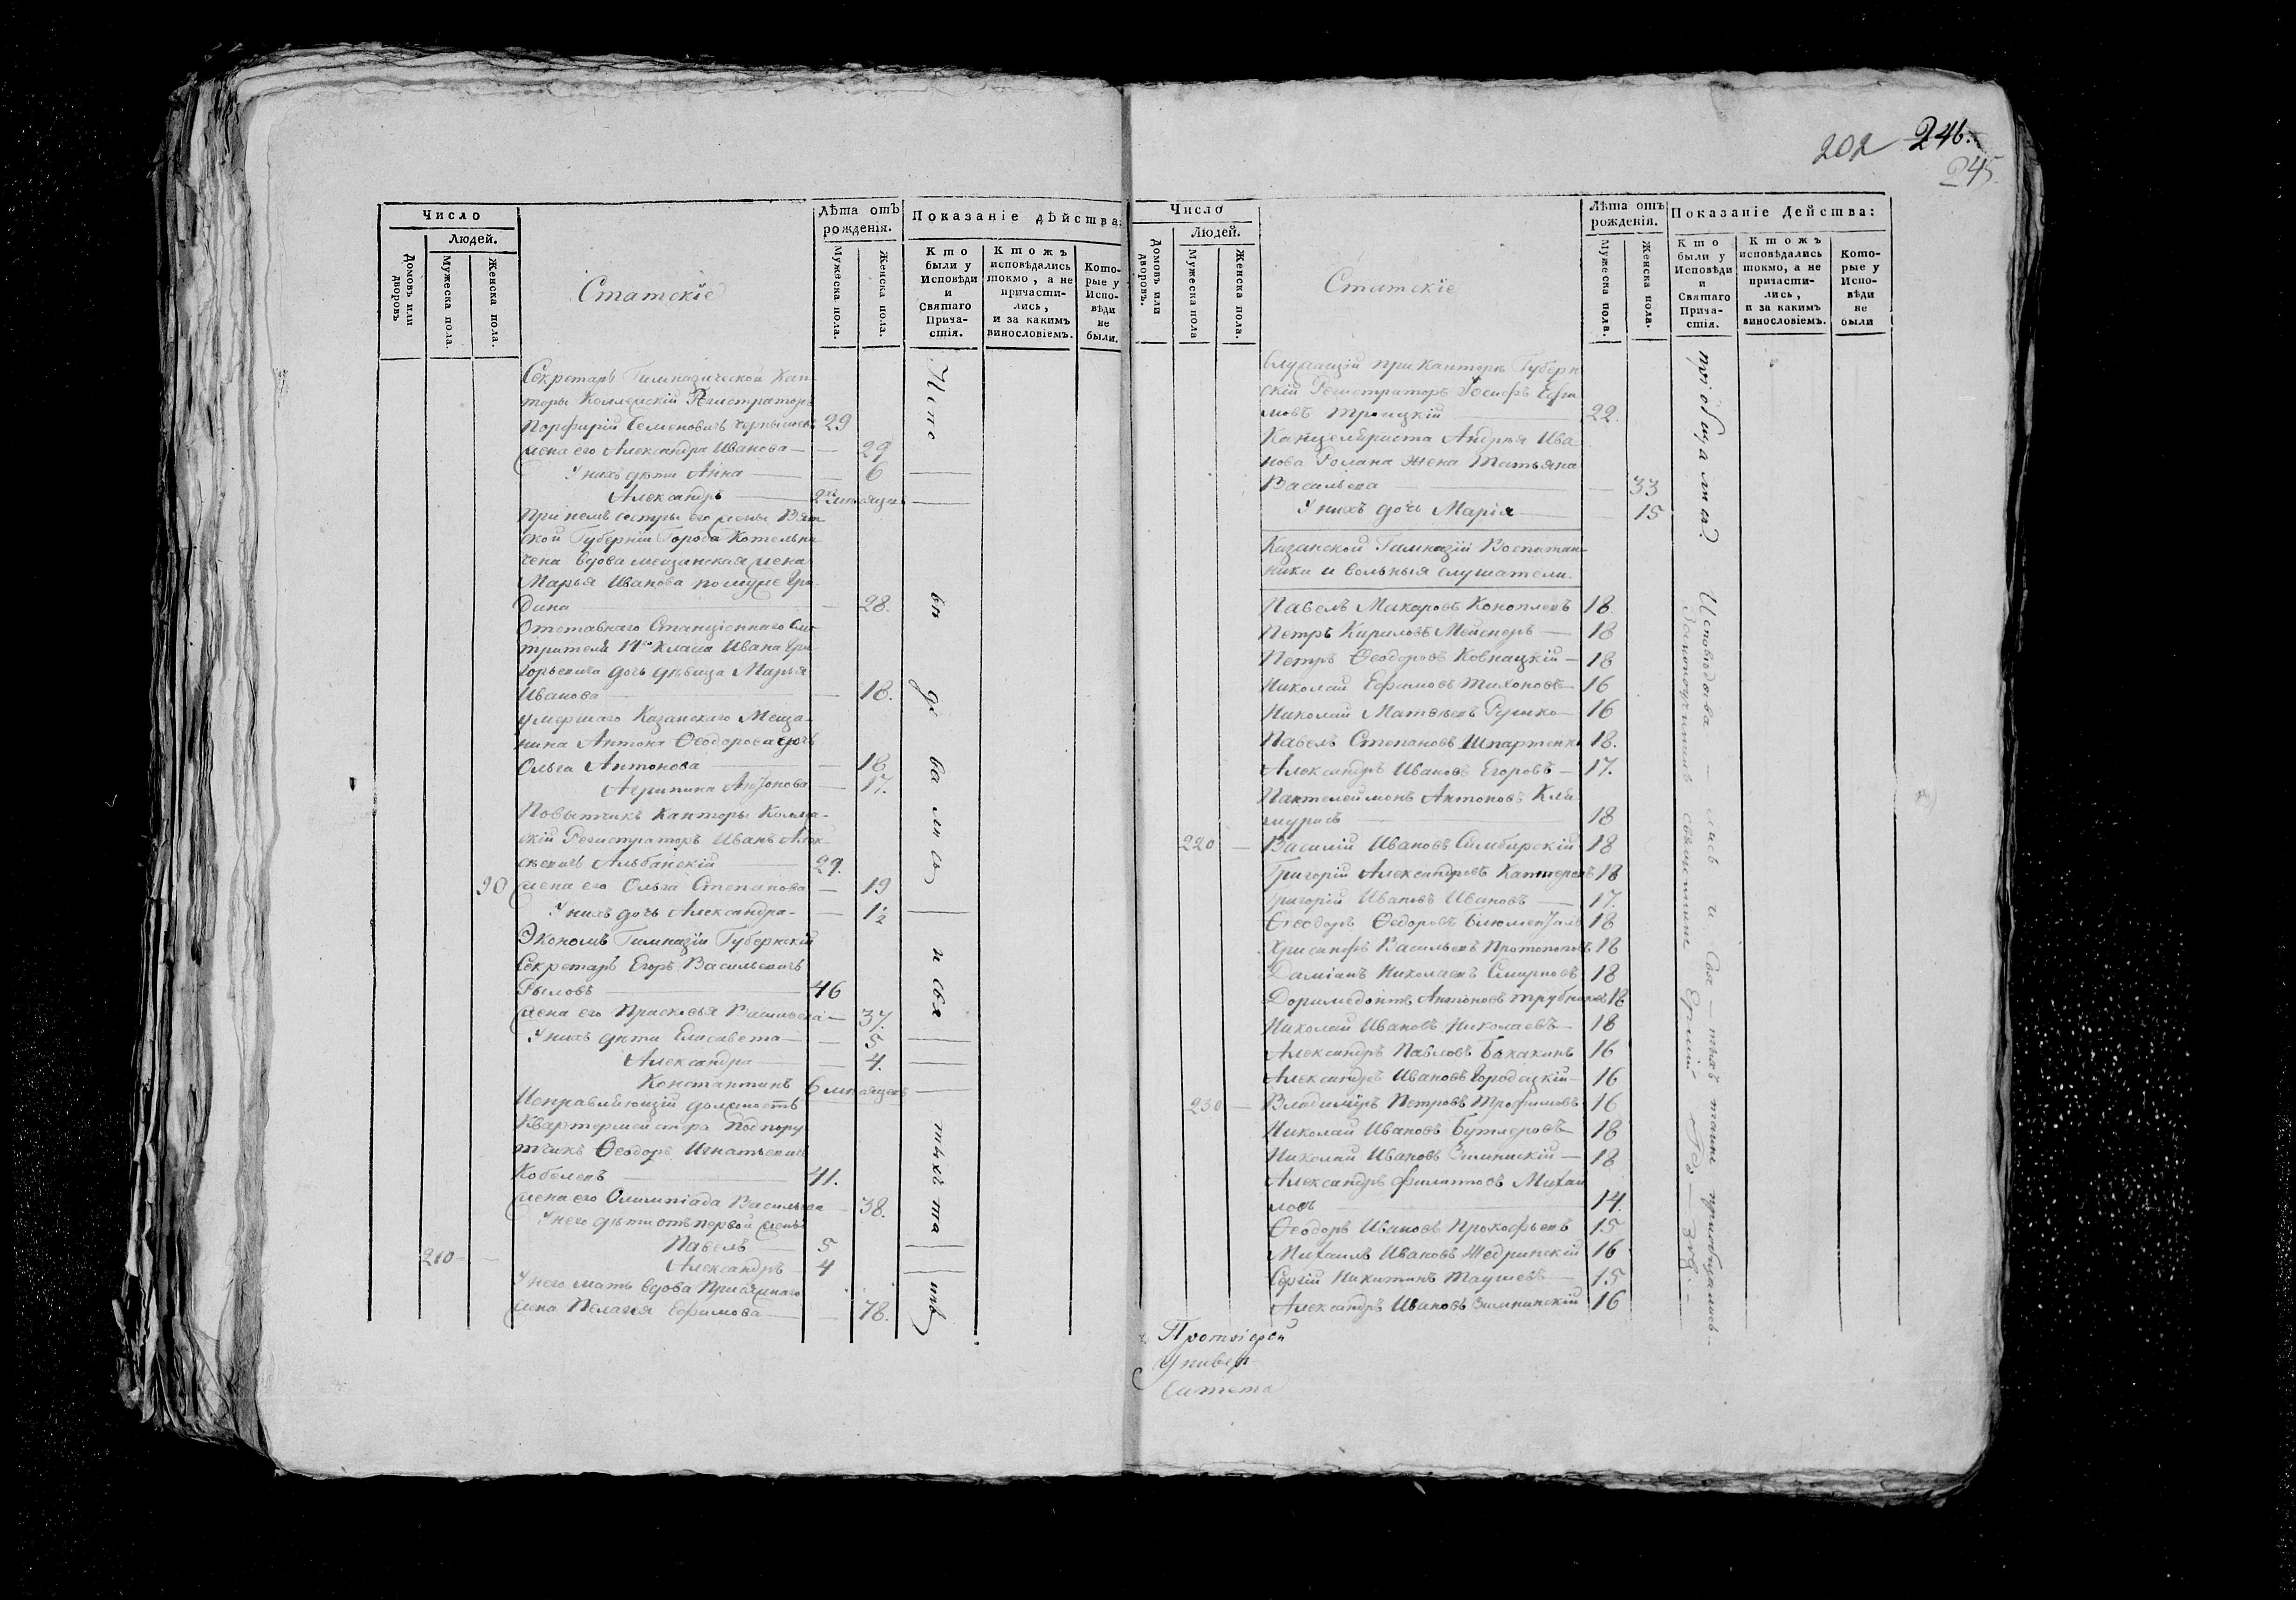 202 246.
245
Число
Людей.
Домовъ или дворовъ
Мужеска пола.
Женска пола.
Статскіе
Лѣта отъ рожденія.
Мужеска пола.
Женска пола.
Показаніе дѣйства:
Кто были у Исповѣди и Святаго Прича-стія.
Ктожъ исповѣдались токмо, а не причасти-лись, и за какимъ винословіемъ.
Кото-рые у Испо-вѣди не были.
Секретарь Гимназической Кан-
торы Коллежскій Регистраторъ
Порфирій Семеновичъ 29
жена его Александра Иванова — 29
У нихъ дѣти Анна — 6
Александръ — 2хъ мѣсяцевъ
При немъ сестры его жены Вят-
ской Губерніи Города Котельни-
чена вдова мещанская жена
Марья Иванова по муже
дина — 28.
Отставнаго Станціоннаго Смо-
трителя 14го Класа Ивана Гри
горьевича дочь дѣвица Марья
Иванова — 18.
умершаго Казанскаго Меща-
нина Антона Ѳеодорова дочь
Ольга Антонова — 18
Агрипина Антонова — 17.
Повытчикъ Канторы Колле-
скій Регистраторъ Иванъ Алек-
сѣевичъ Альбанскій — 29.
90 жена его Ольга Степанова — 19
У нихъ дочь Александра — 1½
Экономъ Гимназіи Губернскій
Секретарь Егоръ Васильевичъ
Рыловъ — 46
жена его Прасковья Васильева — 37.
У нихъ дѣти Елисавета — 5
Александра — 4.
Константинъ 6 мѣсяцевъ
Исправляющій должность
Квартермейстера Подпору
тчикъ Ѳеодоръ Игнатьевичъ
Кобелевъ — 41.
жена его Олимпіада Васильева 38.
У него дѣти отъ первой жены
Павелъ — 5
210 — Александръ — 4
У него мать вдова Присяжнаго
жена Пелагея Ефимова — 78.
Испо
вѣ
до
ва
лись
и свя
тыхъ та
инъ
Число
Людей.
Домовъ или дворовъ.
Мужеска пола
Женска пола.
Статскіе
Лѣта отъ рожденія.
Мужеска пола.
Женска пола.
Показаніе Действа:
Кто были у Исповѣди и Святаго Прича-стія.
Ктожъ исповѣдались токмо, а не причасти-лись, и за какимъ винословіемъ.
Кото-рые у Испо-вѣди не были
Служащій при Канторѣ Губерн
скій Регистраторъ Іосифъ Ефи
мовъ Троицкій — 22.
Канцеляриста Андрея Ива
нова Романа жена Татьяна
Васильева — 33
У нихъ дочь Марія — 15
Казанской Гимназіи Воспитан-
ники и вольныя слушатели.
Павелъ Макаровъ Коноплевъ 18.
Петръ Кириловъ Мейснеръ — 18
Петръ Ѳеодоровъ Ковнацкій — 18
Николай Ефимовъ Тихоновъ — 16
Николай Матвѣевъ — 16
Павелъ Степановъ 18.
Александръ Ивановъ Егоровъ — 17.
Пантелеймонъ Антоновъ
— 18
220 — Василій Ивановъ Симбирскій 18
Григорій Александровъ 18
Григорій Ивановъ Ивановъ — 17.
Ѳеодоръ Ѳедоровъ 18
Хрисанфъ Васильевъ Протопоповъ 18
Даміанъ Николаевъ Смирновъ 18
Доримедонтъ Антоновъ Трубниковъ 18
Николай Ивановъ Николаевъ — 18
Александръ Павловъ 16
Александръ Ивановъ Городецкій — 16
230 — Владиміръ Петровъ Трофимовъ 16
Николай Ивановъ Бутлеровъ — 18
Николай Ивановъ Зимнинскій — 18
Александръ Филиповъ Михай
ловъ — 14.
Ѳеодоръ Ивановъ Прокофьевъ 15
Михаилъ Ивановъ Жедринскій 16
Сергій Никитинъ Таушевъ — 15
Александръ Ивановъ Зимнинскій 16
пріобщались.
Исповѣдова — лись и Свя — тыхъ таинъ пріобщались.
Законоучитель священникъ
Протоіерей
Универ
ситета